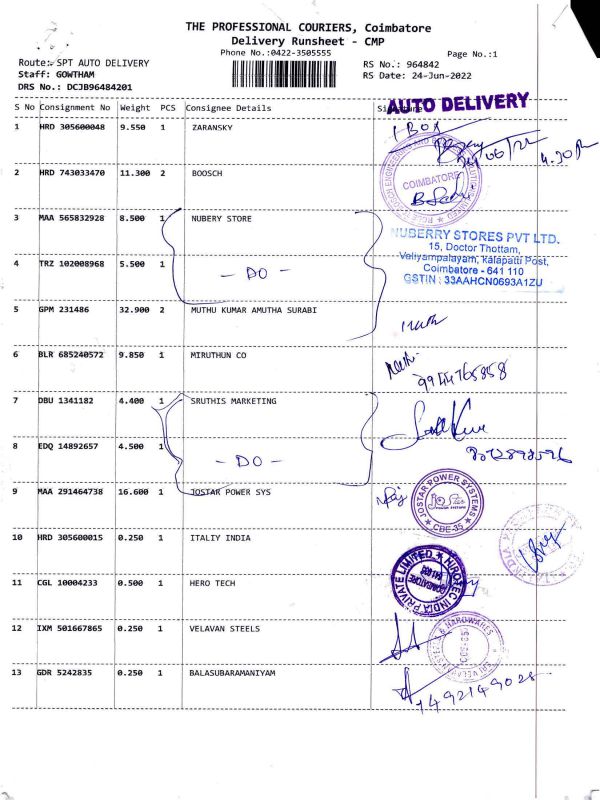 THE PROFESSIONAL COURIERS, Coimbatore
Delivery Runsheet - CMP
Phone No.:0422-3505555
Page No.:1
Route: SPT AUTO DELIVERY
RS No.: 964842
Staff: GOWTHAM
RS Date: 24-Jun-2022
DRS No.: DCJB96484201
S No Consignment No Weight PCS Consignee Details
AUTO DELIVERY
1 HRD 305600048 9.550 1 ZARANSKY
1 BOX
4.30
2 HRD 743033470 11.300 2 BOOSCH
COIMBATORE
3 MAA 565832928 8.500 1 NUBERY STORE
NUBERRY STORES PVT LTD.
15, Doctor Thottam,
Valiyampalayam, Kalapatti Post,
Coimbatore - 641 110
GSTIN : 33AAHCN0693A1ZU
4 TRZ 102008968 5.500 1
- DO -
5 GPM 231486 32.900 2 MUTHU KUMAR AMUTHA SURABI
6 BLR 685240572 9.850 1 MIRUTHUN CO
9944765858
7 DBU 1341182 4.400 1 SRUTHIS MARKETING
8 EDQ 14892657 4.500 1
- DO -
9 MAA 291464738 16.600 1 JOSTAR POWER SYS
JOSTAR POWER SYSTEMS
CBE-35
10 HRD 305600015 0.250 1 ITALIY INDIA
11 CGL 10004233 0.500 1 HERO TECH
NIROTEC INDIA PRIVATE LIMITED
COIMBATORE
12 IXM 501667865 0.250 1 VELAVAN STEELS
13 GDR 5242835 0.250 1 BALASUBARAMANIYAM